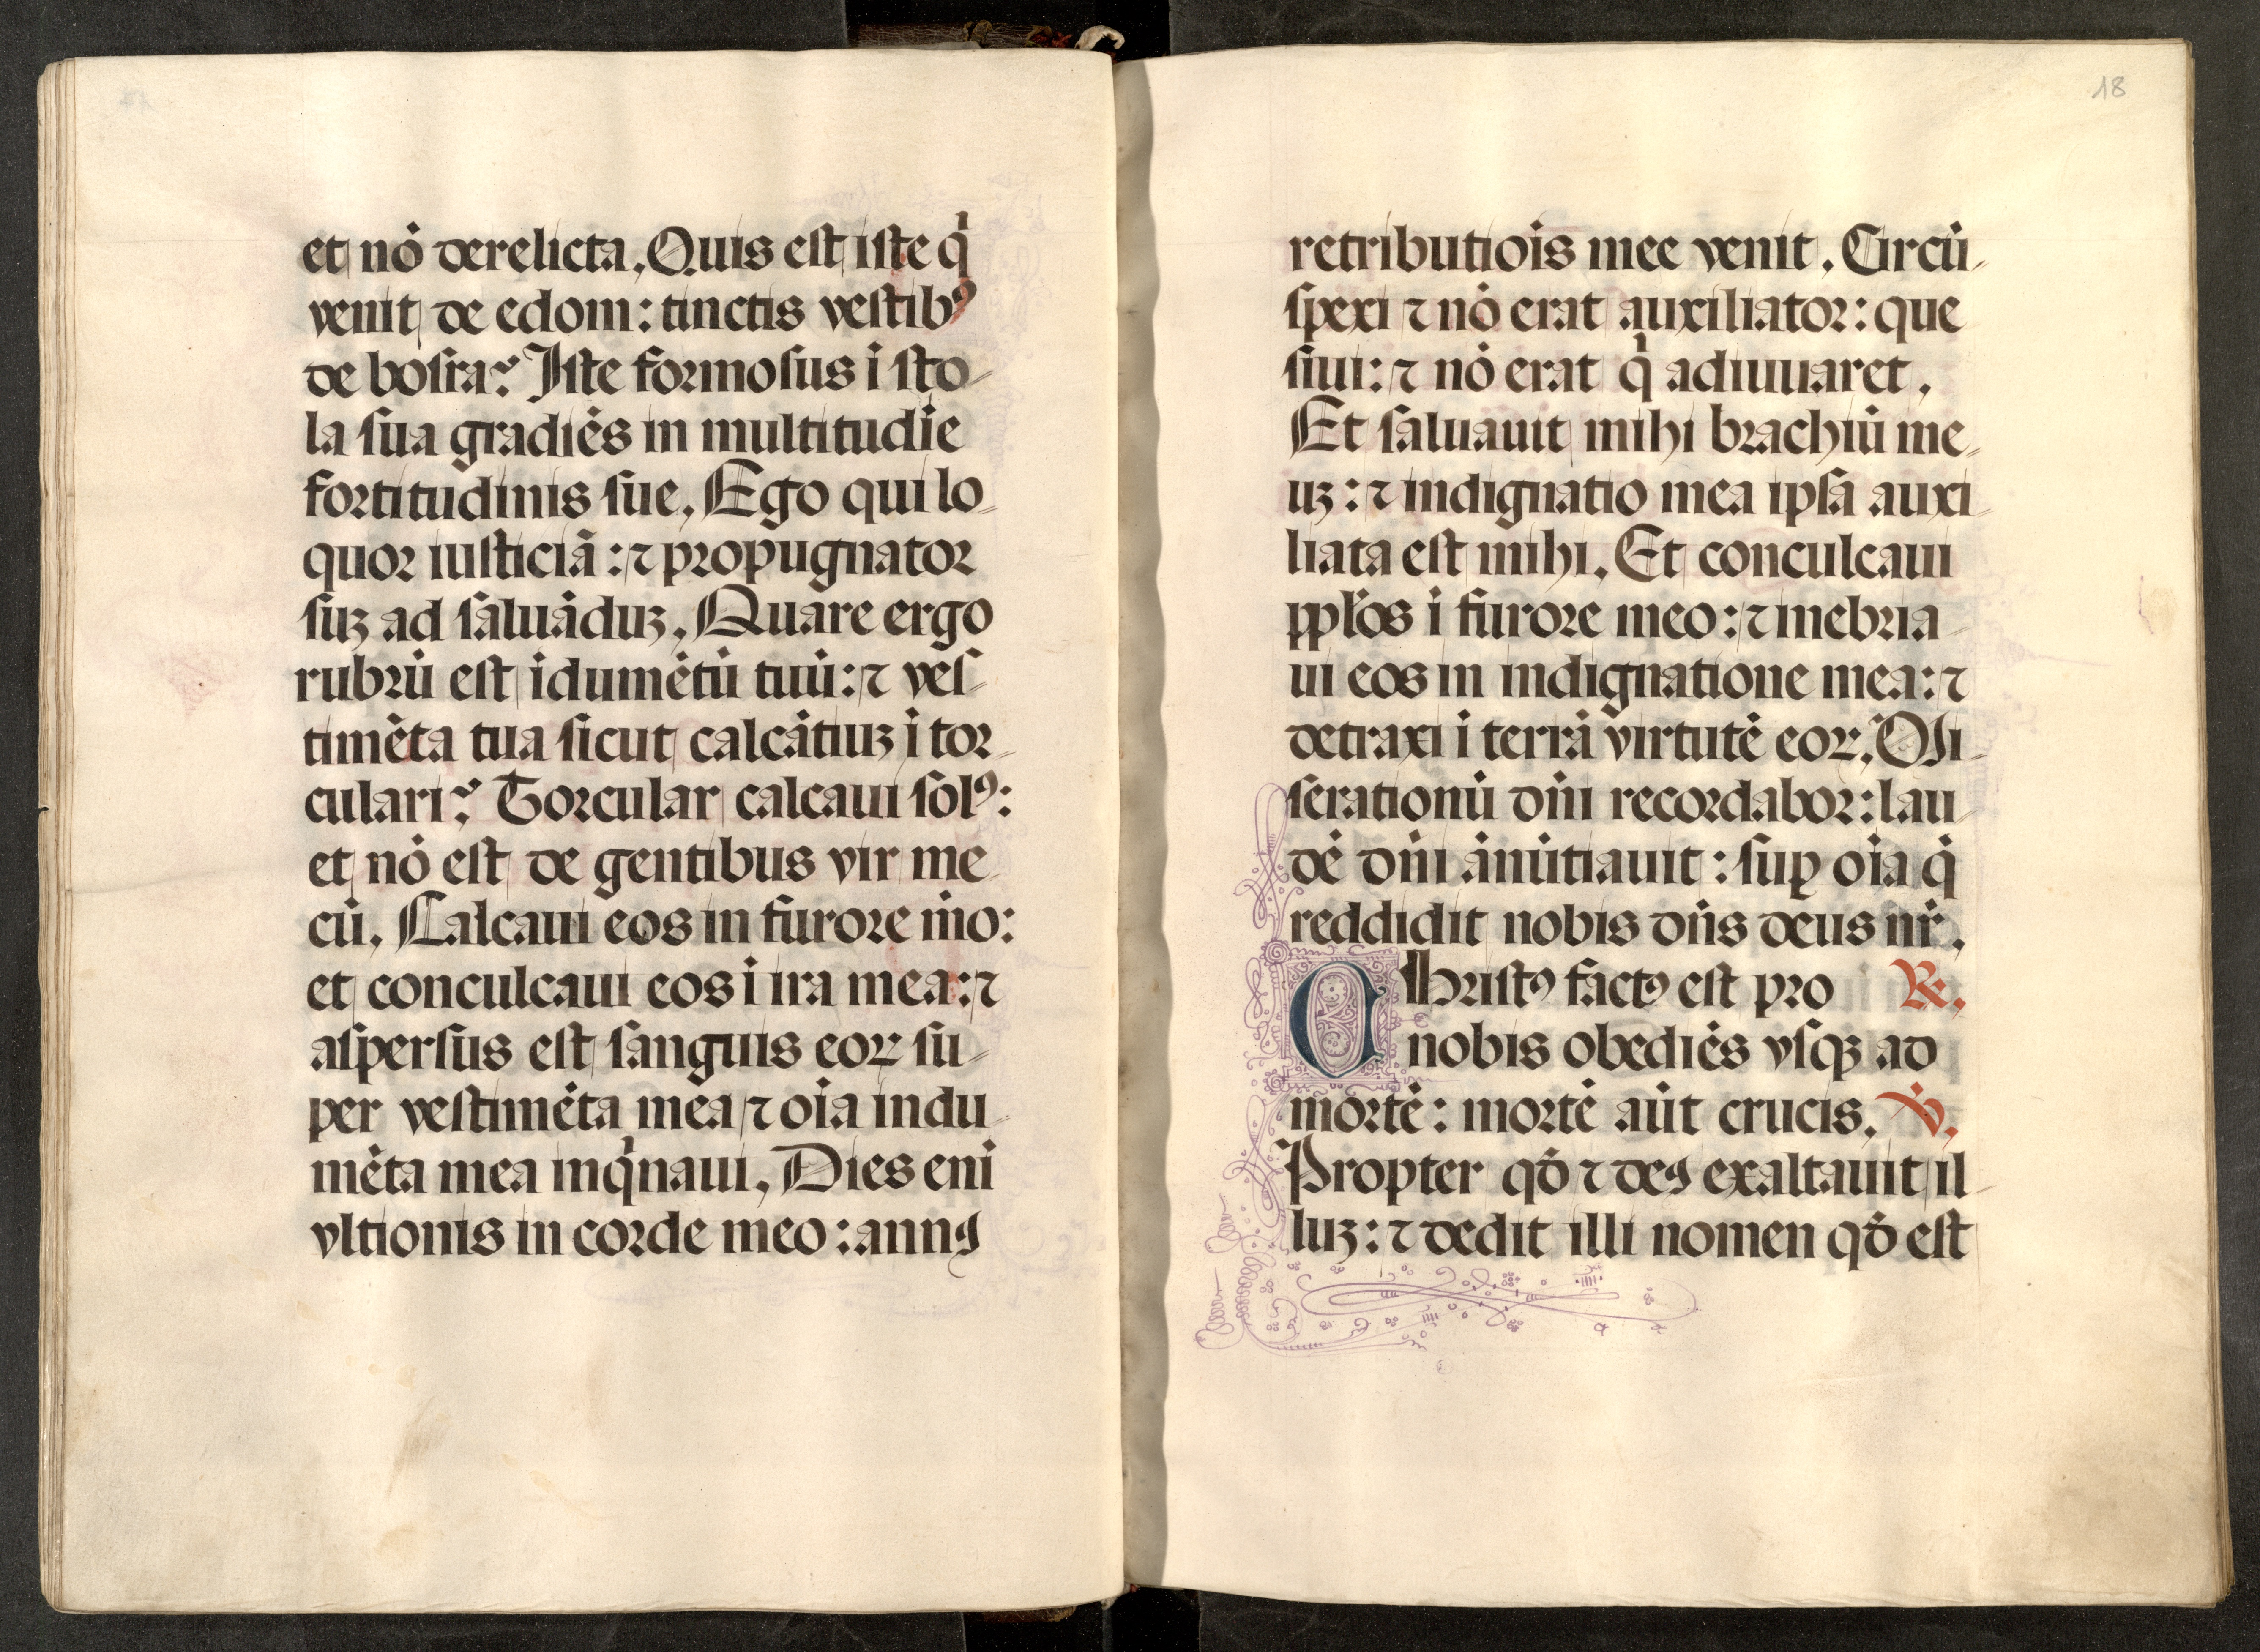 et nō derelicta. Quis est iste qͥ
venit de edom: tinctis vestibꝰ
de bosra? Iste formosus ī sto-
la sua gradiēs in multitudīe
fortitudinis sue. Ego qui lo-
quor iusticiā: ⁊ propugnator
suꝫ ad saluāduꝫ. Quare ergo
rubrū est īdumētū tuū: ⁊ ves-
timēta tua sicut calcātiuꝫ ī tor-
culari? Torcular calcaui solꝰ:
et nō est de gentibus vir me-
cū. Calcaui eos in furore m̄o:
et conculcaui eos ī ira mea: ⁊
aspersus est sanguis eoꝝ su-
per vestimēta mea ⁊ oīa indu-
mēta mea inqͥnaui. Dies eni
vltionis in corde meo: annꝰ
18
retributiōis mee venit. Circū-
spexi ⁊ nō erat auxiliator: que
siui: ⁊ nō erat qͥ adiuuaret.
Et saluauit mihi brachiū me-
uꝫ: ⁊ indignatio mea ipsa auxi-
liata est mihi. Et conculcaui
pplōs ī furore meo: ⁊ inebria-
ui eos in indignatione mea: ⁊
detraxi ī terrā virtutē eoꝝ. Mi-
serationū dn̄i recordabor: lau-
dē dn̄i ānūtiauit: suꝑ oīa q̄
reddidit nobis dn̄s deus nr̄.
Christꝰ factꝰ est pro ℟.
nobis obediēs vsqꝫ ad
mortē: mortē aūt crucis. ℣.
Propter qd̄ ⁊ deꝰ exaltauit il-
luꝫ: ⁊ dedit illi nomen qd̄ est